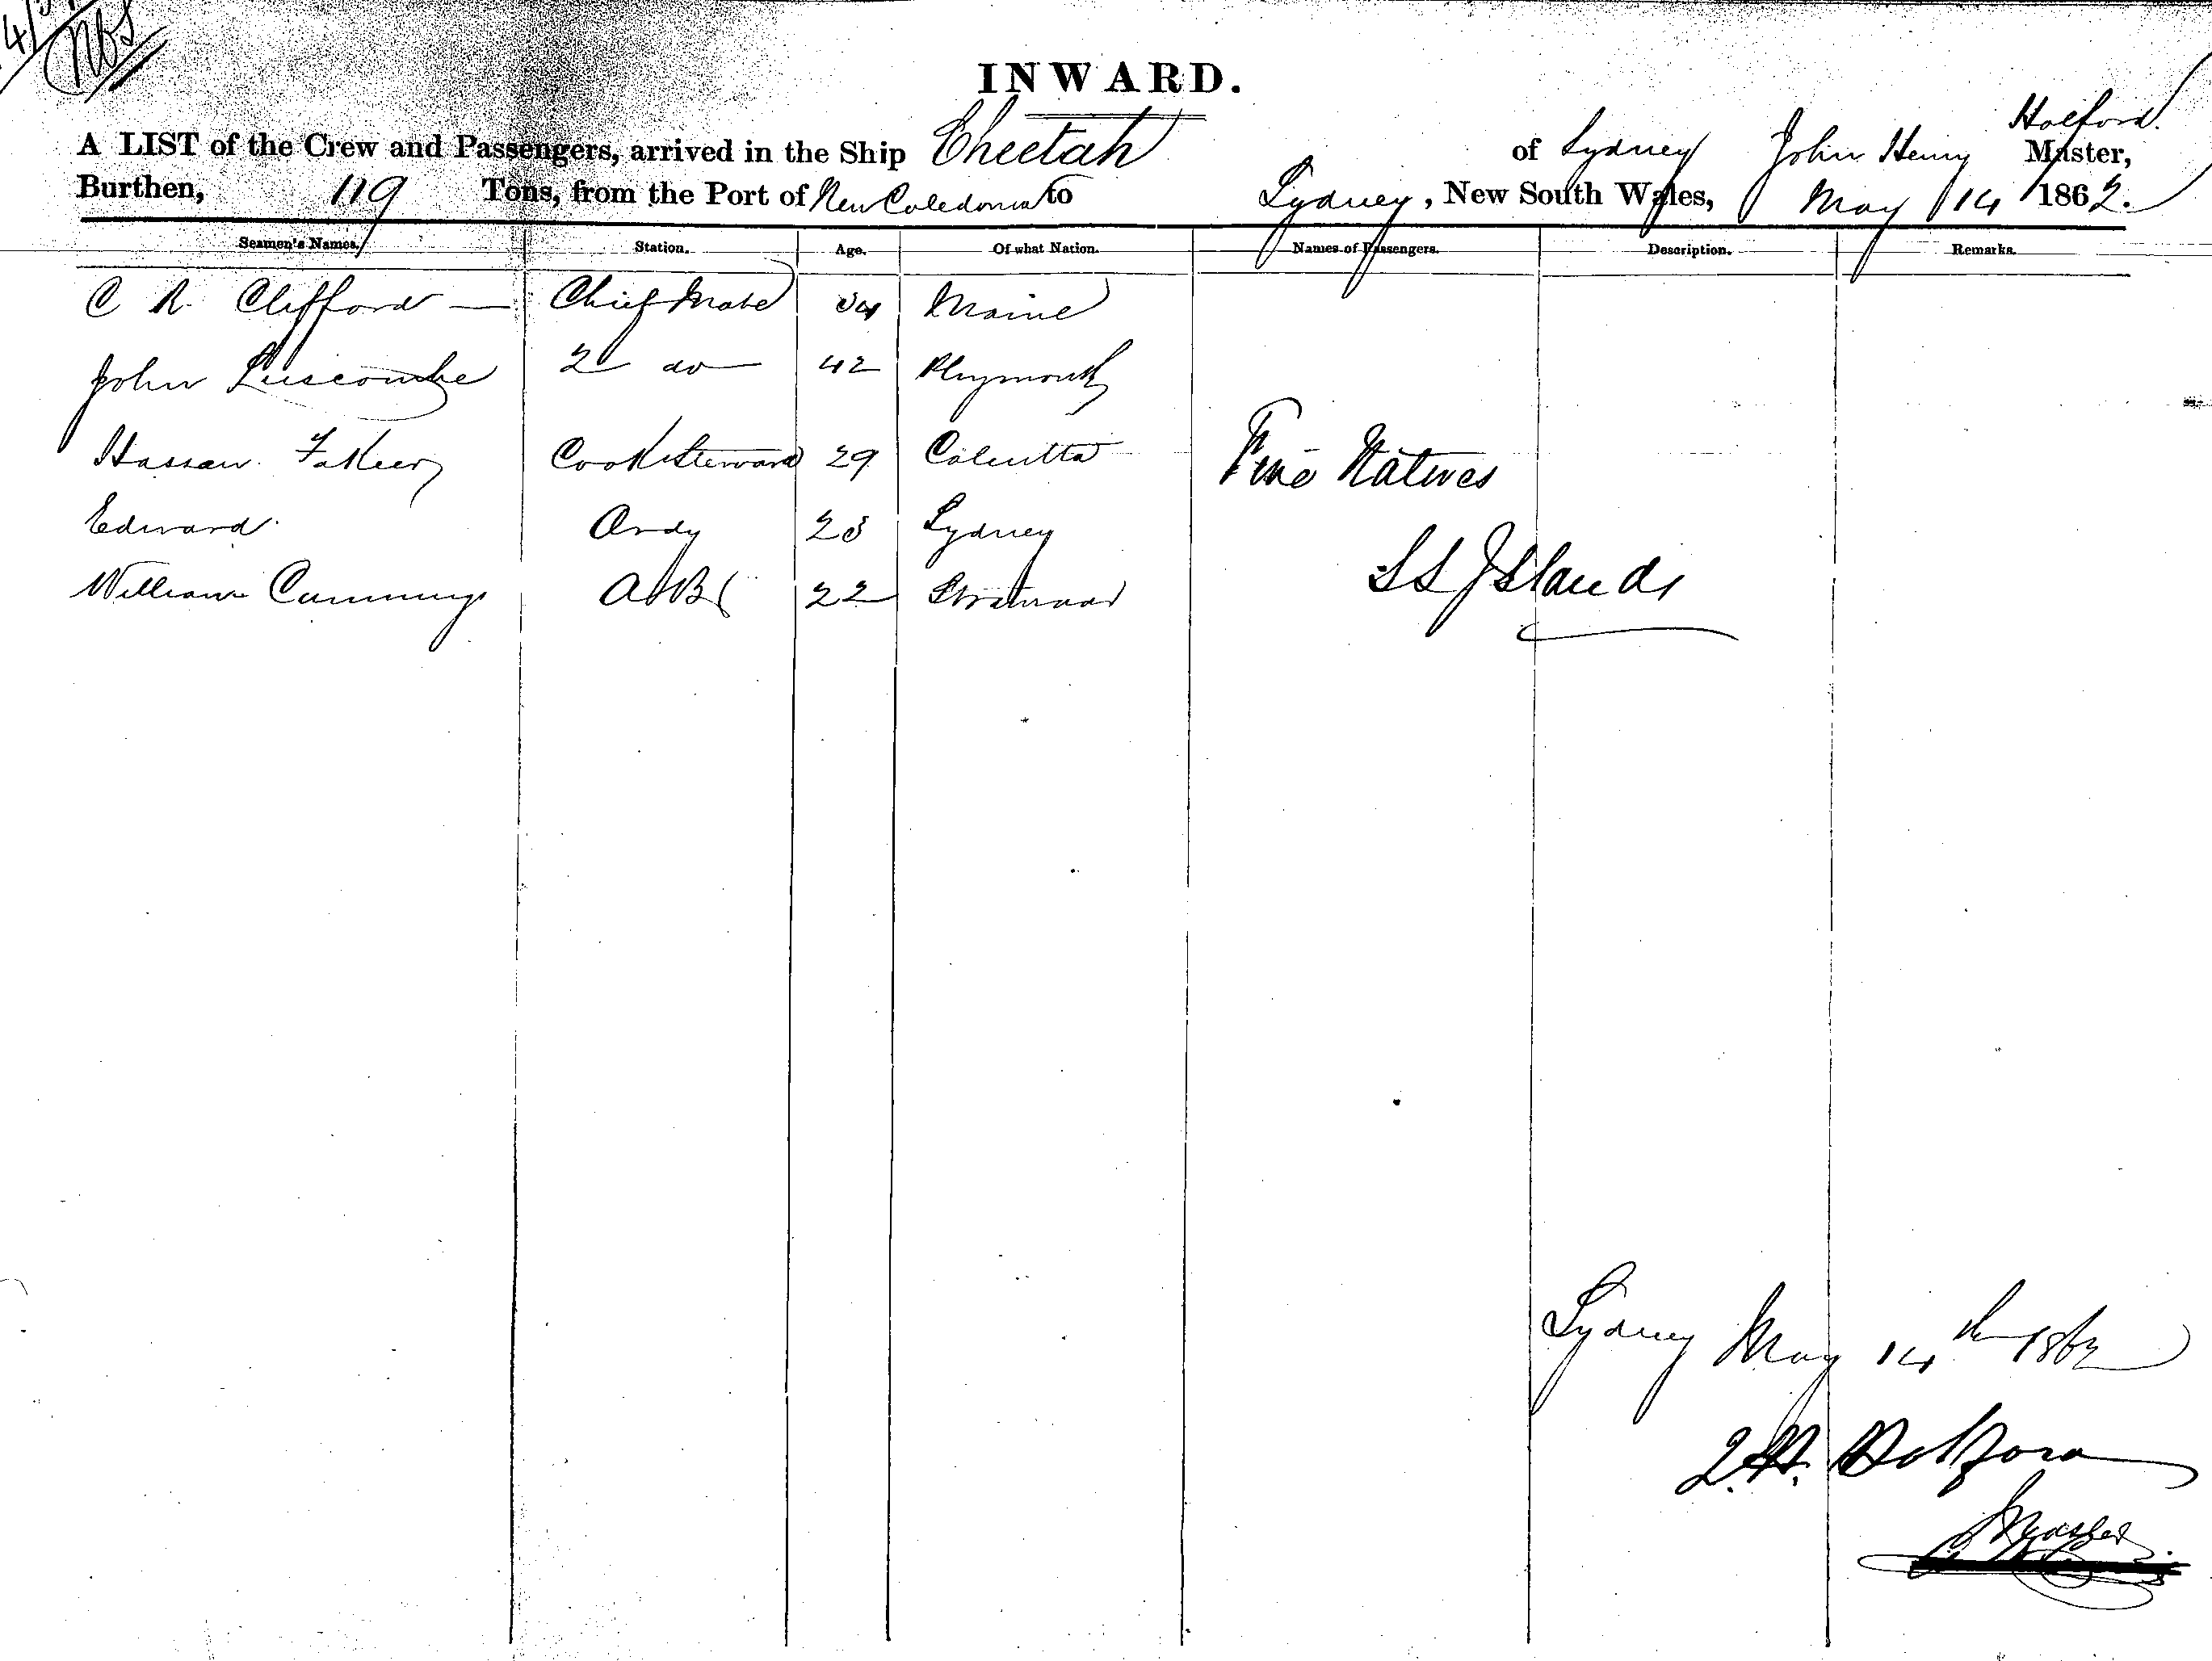 INWARD.
A LIST of the Crew and Passengers, arrived in the Ship Cheetah of Sydney John Henry Holford. Master,
Burthen, 119 Tons, from the Port of New Caledonia to Sydney, New South Wales, May 14 1862.
Seamen's Names. Station. Age. Of what Nation. Names of Passengers. Description. Remarks.
C R Clifford — Chief Mate 34 Maine
John Luscombe 2 do 42 Plymouth
Hassan Fakeer Cook & Steward 29 Calcutta Five Natives
Edward Ordy 23 Sydney
William Cummings AB 22 S S Islands
Sydney May 14th 1862
J. H. Holford
Master